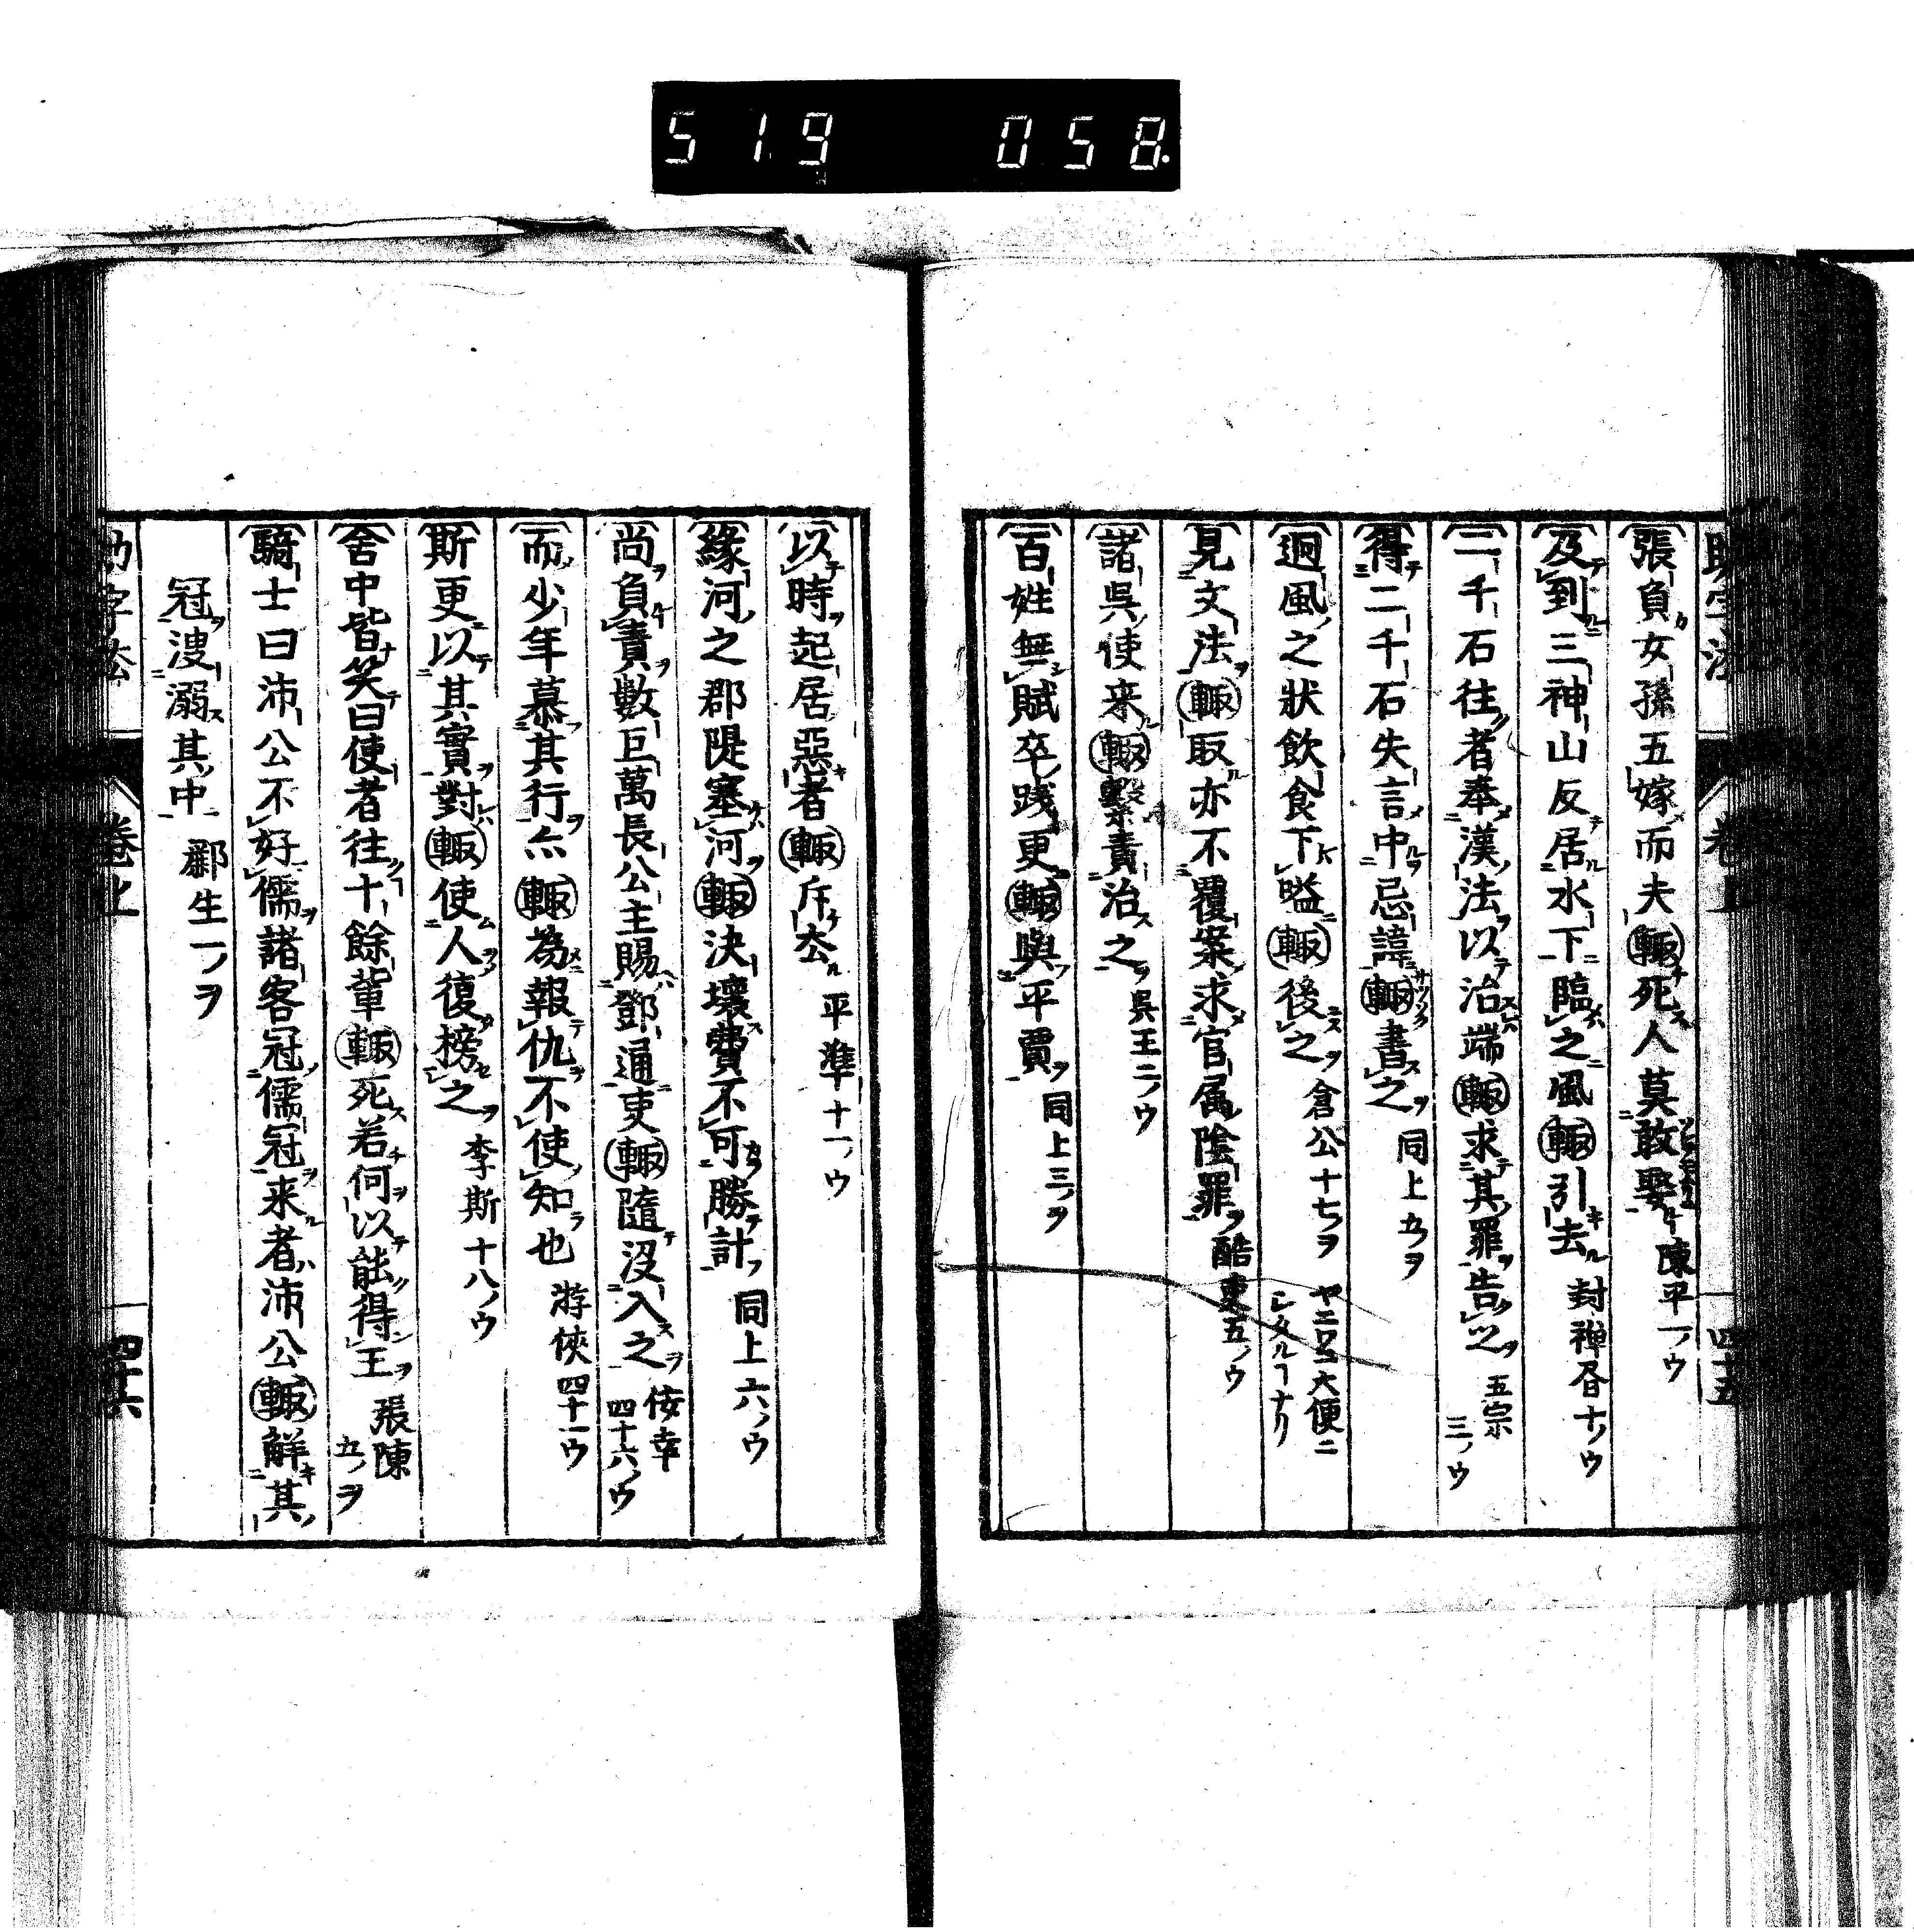 519 058.
張負女孫五嫁而夫輙死人莫敢娶 陳平一ノウ
及到三神山反居水下臨之風輙引去 封禅昏十ノウ
二千石往者奉漢法以治端輙求其罪告之 五宗三ノウ
得二千石失言中忌諱輙書之 同上五ノヲ
迥風之狀飲食下嗌輙後之 倉公十七ノヲ
見文法輙取亦不覆案求官属陰罪 酷吏五ノウ
諸呉使来輙繫責治之 呉王二ノウ
百姓無賦卒践更輙與平賈 同上三ノヲ
以時起居惡者輙斥去 平準十一ノウ
緣河之郡隄塞河輙決壞費不可勝計 同上六ノウ
尚負責數巨萬長公主賜鄧通吏輙隨沒入之 佞幸四十六ノウ
而少年慕其行亦輙為報仇不使知也 游俠四十一ウ
斯更以其實對輙使人復榜之 李斯十八ノウ
舍中皆笑曰使者往十餘輩輙死若何以能得王 張陳五ノヲ
騎士曰沛公不好儒諸客冠儒冠来者沛公輙解其
冠溲溺其中 酈生一ノヲ
卷上
四十六